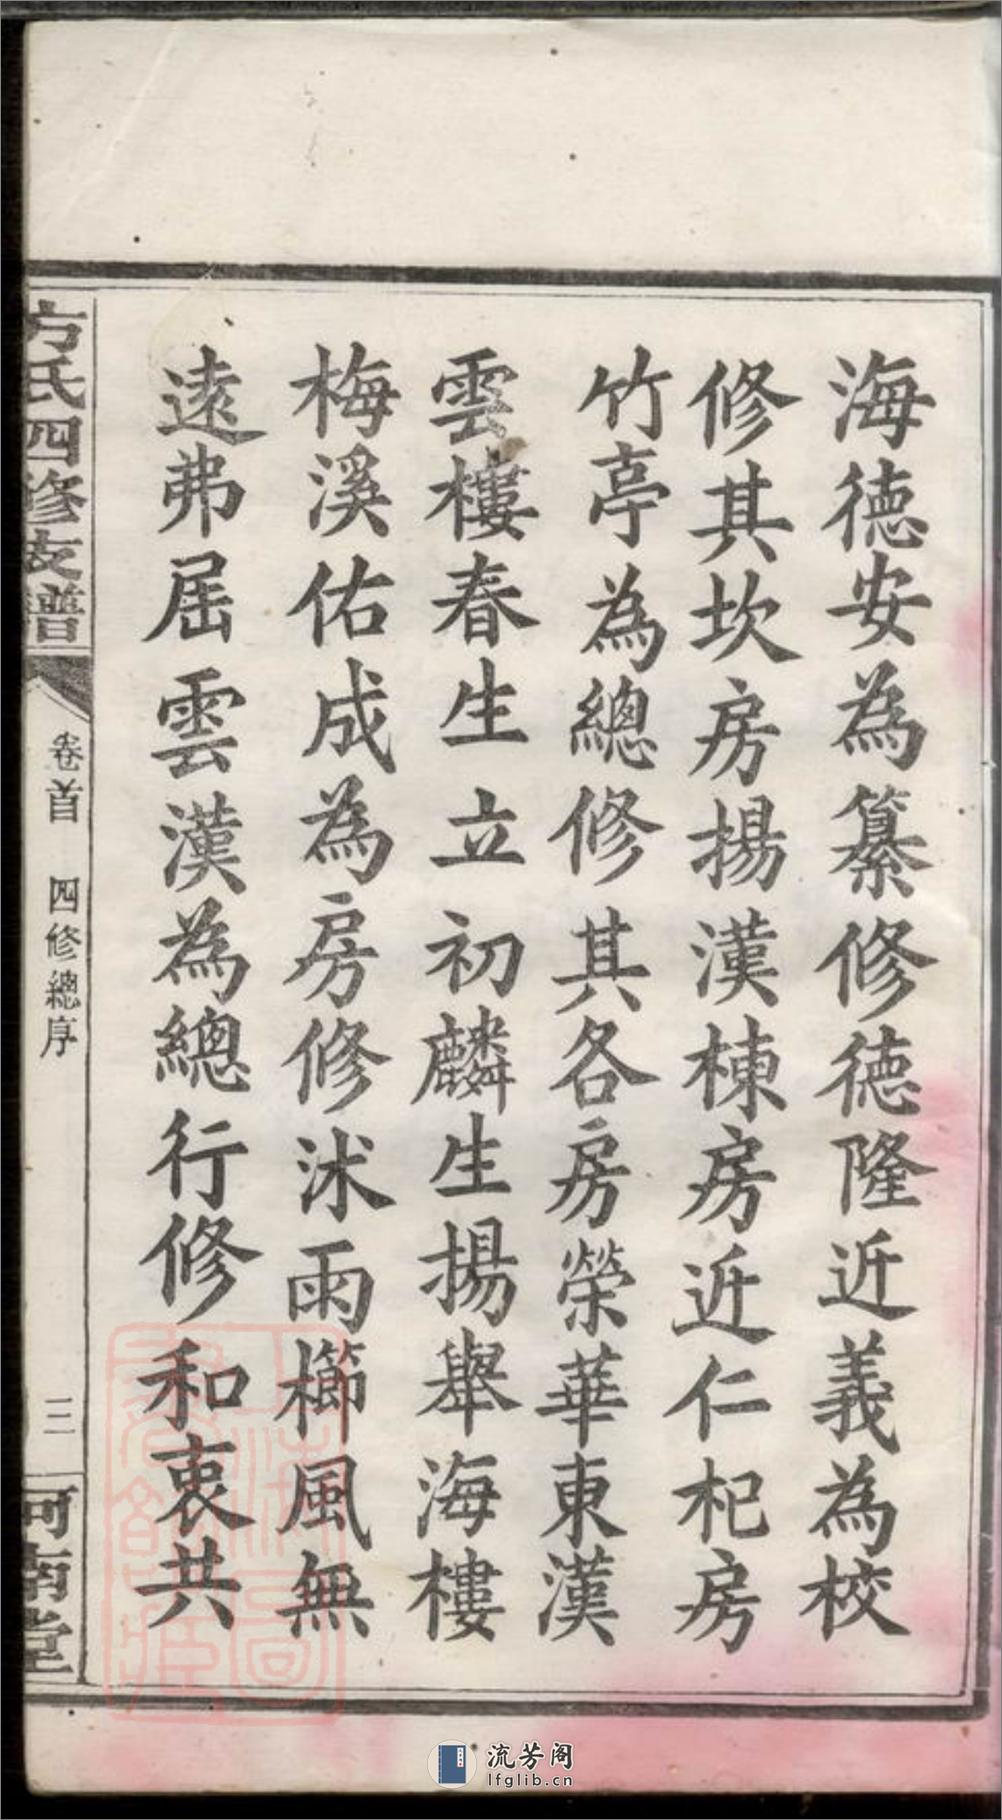 海德安為纂修德隆近義為校
修其坎房揚漢棟房近仁杞房
竹亭為總修其各房榮華東漢
雲樓春生立初麟生揚舉海樓
梅溪佑成為房修沭雨櫛風無
遠弗屆雲漢為總行修和衷共
方氏四修支譜
卷首 四修總序
三
河南堂
流芳阁
lfglib.cn